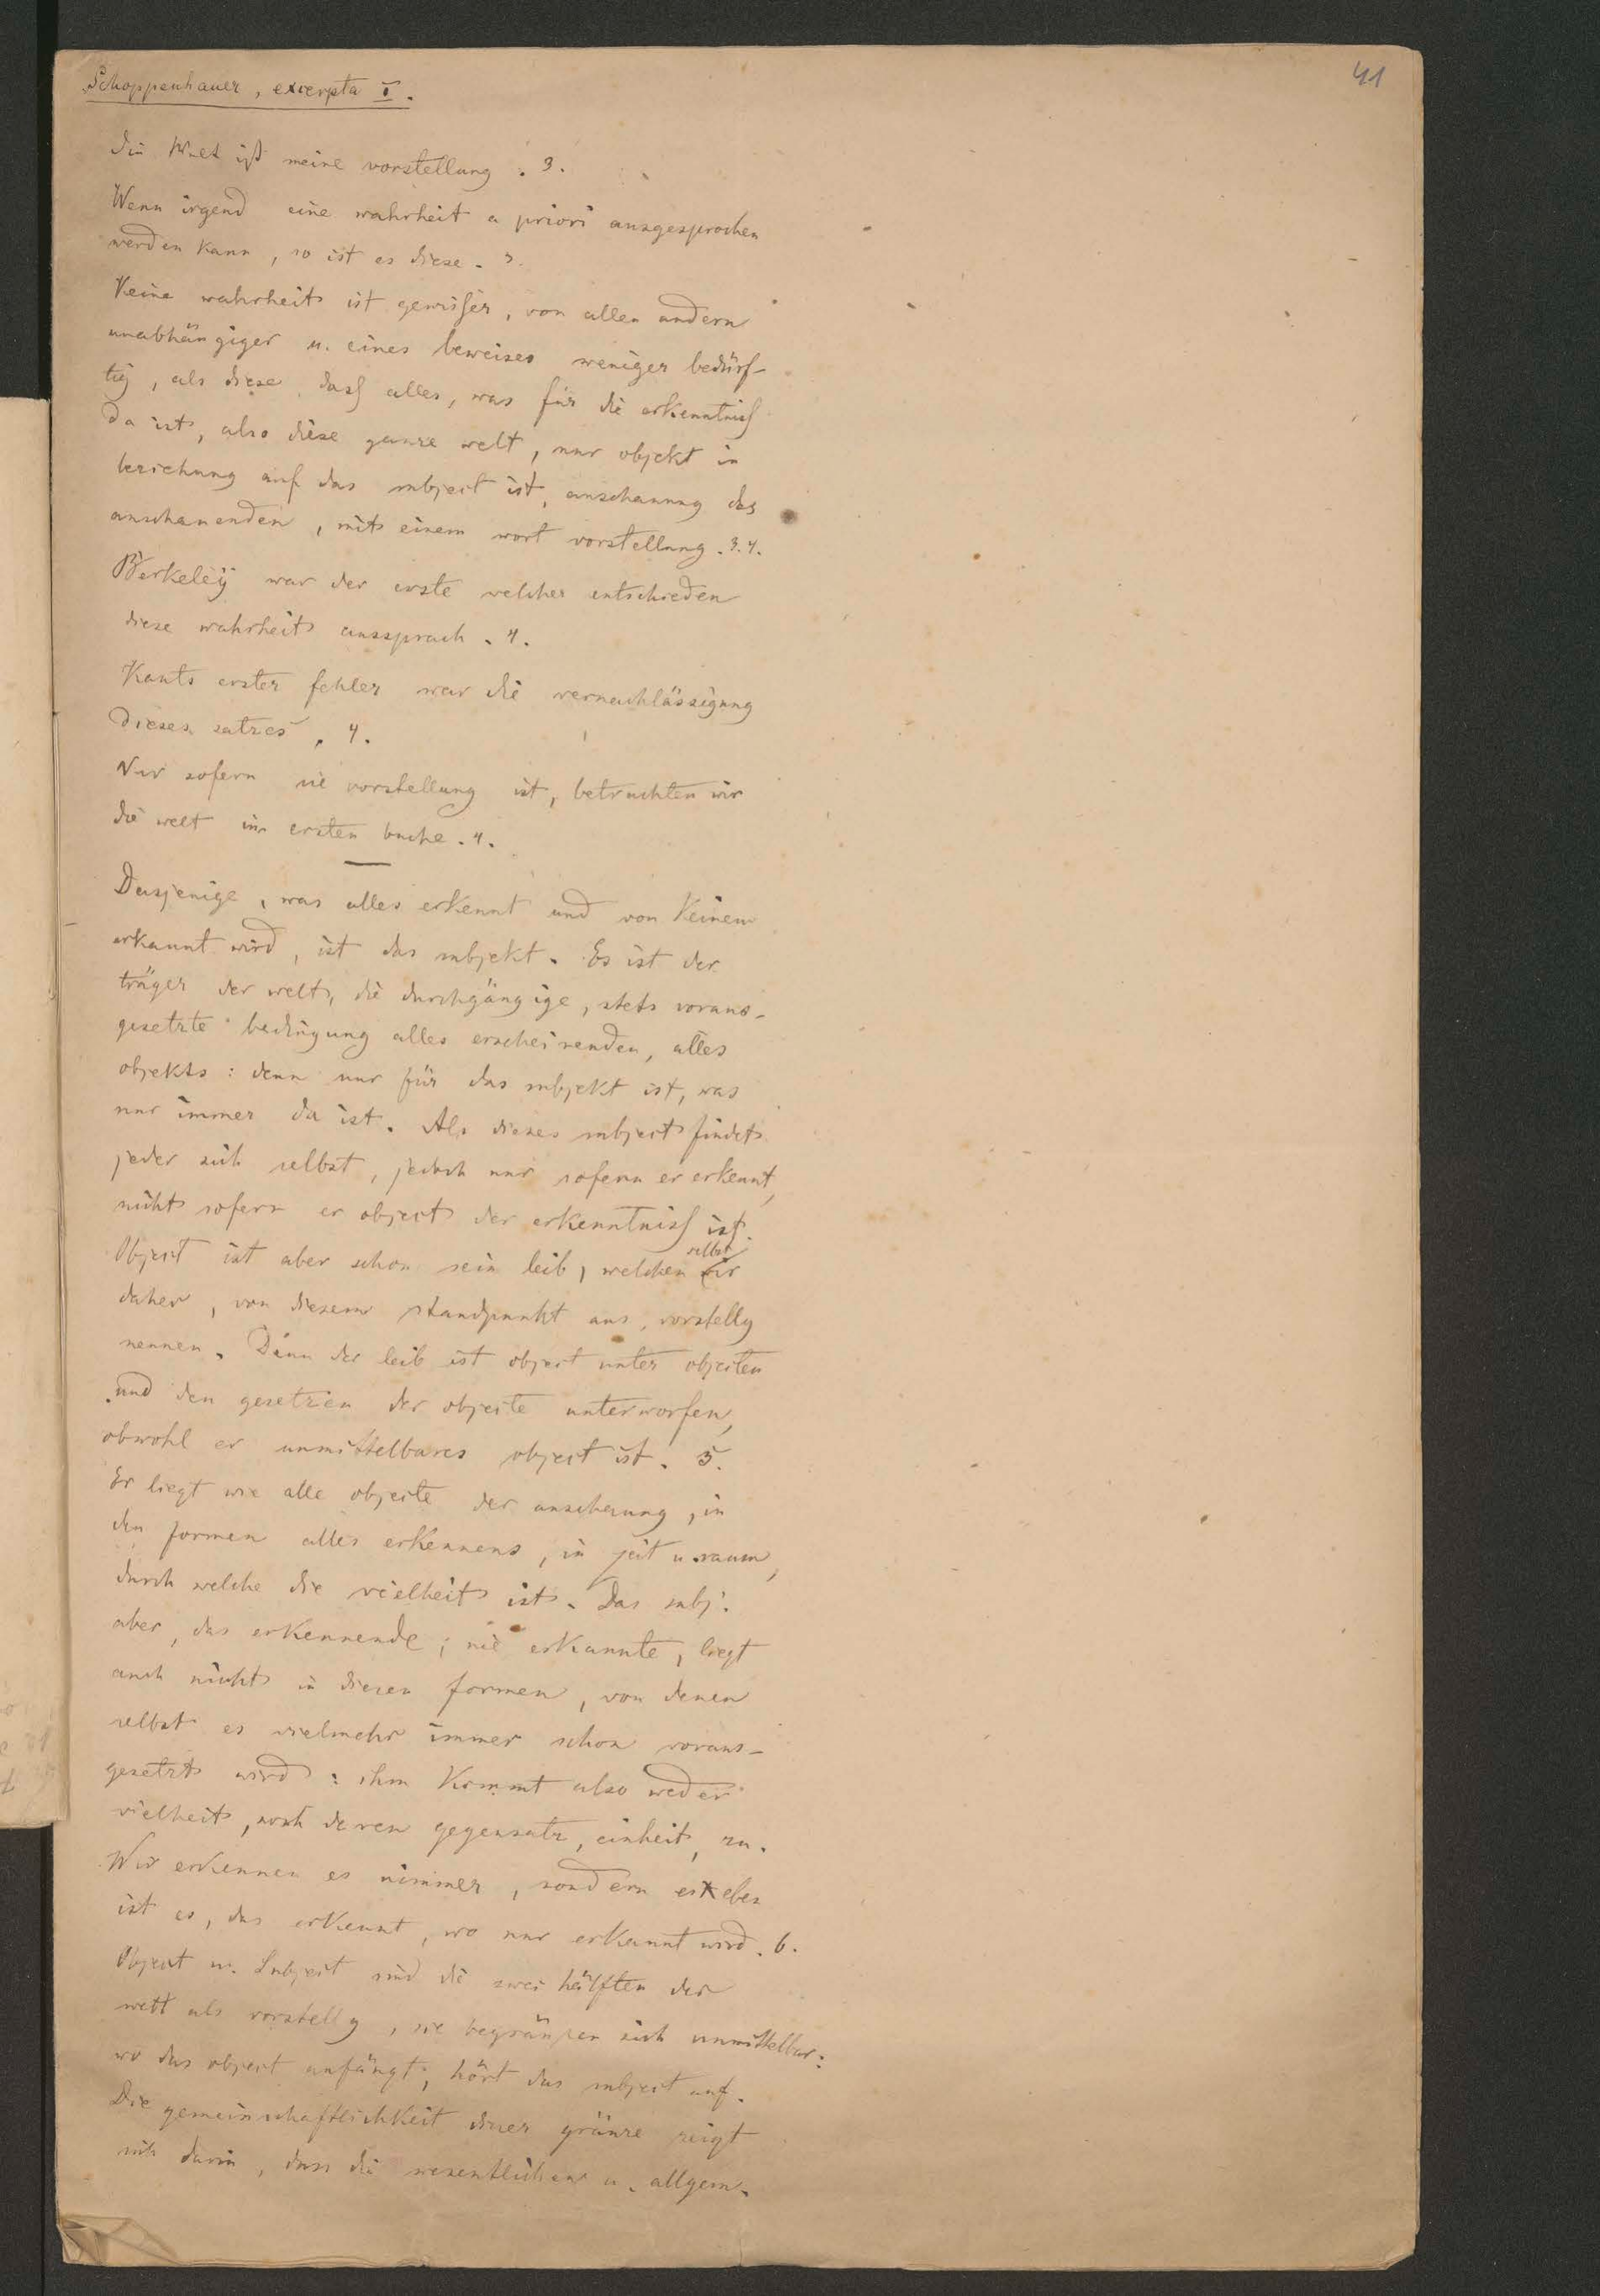 41
Schoppenhauer, excerpta I.
die Welt ist meine vorstellung. 3.
Wenn irgend eine wahrheit a priori ausgesprochen
werden kann, so ist es diese. 3.
Keine wahrheit ist gewisser, von allen andern
unabhängiger u. eines beweises weniger bedürf-
tig, als diese, dass alles, was für die erkenntniss
da ist, also diese ganze welt, nur objekt in
beziehung auf das subject ist, anschauung des
anschauenden, mit einem wort vorstellung. 3.4.
Berkeley war der erste welcher entschieden
diese wahrheit aussprach. 4.
Kants erster fehler war die vernachlässigung
dieses satzes. 4.
Nur sofern sie vorstellung ist, betrachten wir
die welt im ersten buche. 4.
Dasjenige, was alles erkennt und von keinem
erkannt wird, ist das subjekt. Es ist der
träger der welt, die durchgängige, stets voraus-
gesetzte bedingung alles erscheinenden, alles
objekts: denn nur für das subjekt ist, was
nur immer da ist. Als dieses subject findet
jeder sich selbst, jedoch nur sofern er erkennt,
nicht sofern er object der erkenntniss ist.
Object ist aber schon sein leib, welchen selbst wir
daher, von diesem standpunkt aus, vorstellg
nennen. Denn der leib ist object unter objecten
und den gesetzen der objecte unterworfen,
obwohl er unmittelbares object ist. 5.
Er liegt wie alle objecte der anschauung, in
den formen alles erkennens, in zeit u. raum,
durch welche die vielheit ist. Das subj.
aber, das erkennende, nie erkannte, liegt
auch nicht in diesen formen, von denen
selbst es vielmehr immer schon voraus-
gesetzt wird: ihm kommt also weder
vielheit, noch deren gegensatz, einheit, zu.
Wir erkennen es nimmer, sondern es eben
ist es, das erkennt, wo nur erkannt wird. 6.
Object u. Subject sind die zwei hälften der
welt als vorstellg, sie begränzen sich unmittelbar:
wo das object anfängt, hört das subject auf.
Die gemeinschaftlichkeit dieser gränze zeigt
sich darin, dass die wesentlichen u. allgem.